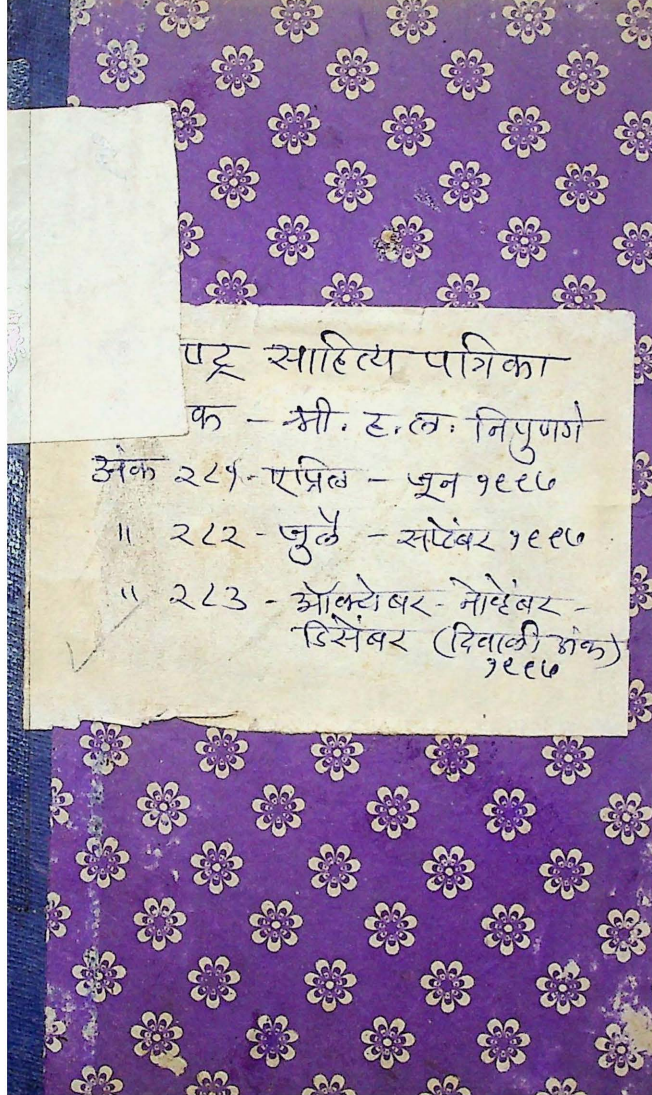 ष्ट्र साहित्य पत्रिका
क - श्री. ह. ल. निपुणगे
अंक २८१ - एप्रिल - जून १९९७
" २८२ - जुलै - सप्टेंबर १९९७
" २८३ - ऑक्टोबर - नोव्हेंबर -
डिसेंबर (दिवाळी अंक)
१९९७